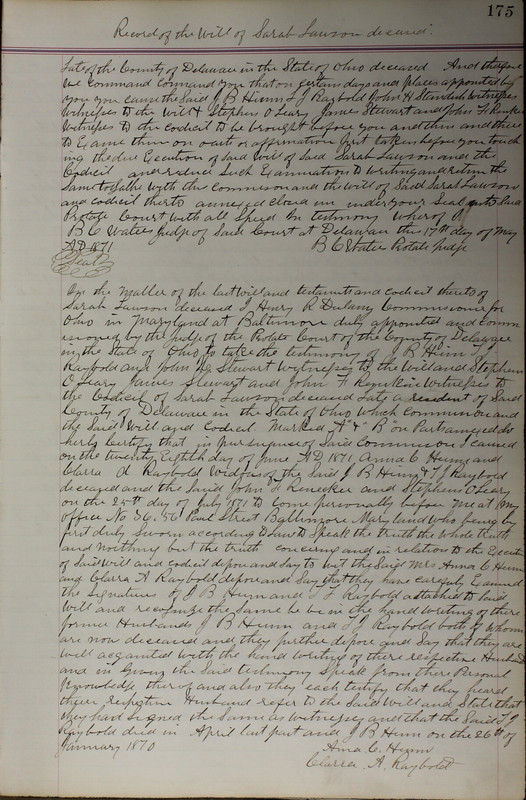 175
Record of the Will of Sarah Lawson deceased.
Late of the County of Delaware in the State of Ohio deceased And therefore
we command command you that on certain days and places appointed by
you you cause the Said J B Hinn T J Raybold John H Standish Witnesses
Witnesses to the will & Stephens O Leary James Stewart and John F Renker
Witnesses to the codicil to be brought before you and then and there
to Examine them on oath or affirmation first taken before you touch
ing the due Execution of Said Will of Said Sarah Lawson and the
Codicil and reduce Such Examination to Writing and return the
Same together with the commission and the will of Said Sarah Lawson
and codicil therto annexed closed up under your Seal unto Said
Probate Court with all Speed In testimony wherof I
B C Waters Judge of Said Court at Delaware this 17th day of May
AD 1871 B C Waters Probate Judge
Seal
In the Matter of the last will and testament and codicil thereto of
Sarah Lawson deceased I Henry R Dulany Commissioner for
Ohio in Maryland at Baltimore duly appointed and Comm
issioned by the Judge of the Probate Court of the County of Delaware
in the State of Ohio to take the testimony of J B Hinn T J
Raybold and John H Stewart Wytnesses to the Will and Stephen
O Leary James Stewart and John F Renekire Witnesses to
the Codicil of Sarah Lawson deceased Late a resident of Said
County of Delaware in the State of Ohio which Commission and
the Said Will and Codicil Marked "A" & "B" on Part annexed do
herby Certify that in pursuance of Said Commission I caused
on the twenty Eighth day of June AD 1871 Anna C Hinn and
Clarra A Raybold Widows of the Said J B Hinn & T J Raybold
deceased and the Said John F Renecker and Stephens O Leary
on the 25th day of July 1871 to come personally before me at my
office No 36. 56 Paul Street Baltimore Maryland who being by
first duly Sworn according to Law to Speak the truth the whole truth
and nothing but the truth concerning and in relation to the Execution
of Said Will and codicil depose and Say to wit the Said Mrs Anna C Hinn
and Clarra A Raybold depose and Say that they have carefuly Examined
the Signatures of J B Hinn and T J Raybold attached to Said
Will and recognize the Same to be in the hand writing of there
former Husbands J B Hinn and T J Raybold both of whom
are now deceased and they further depose and Say that they are
well acquainted with the hand writing of there respective Husbands
and in Giving the Said testimony Speak from there Personal
Knowledge therof and also they each testify that they heard
their respective Husband refer to the Said Will and State that
they had signed the Same as Witnesses and that the Said T J
Raybold died in April last past and J B Hinn on the 26th of
January 1870 Anna C. Hinn
Clarra A. Raybold